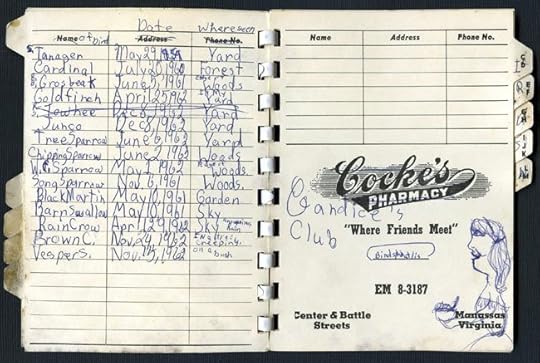 Date Where seen
Name of bird Address Phone No.
S. Tanager May 29, Yard
Cardinal July 20, 1962 Forest
Grosbeak June 5, 1961 Woods
Goldfinch April 25, 1962 Yard
S. Towhee Dec 8, 1962 Yard
Junco Dec 8, 1962 Yard
Tree Sparrow June 6, 1963 Yard
Chipping Sparrow 1962 Woods
Sparrow May 1, 1962 Woods
Song Sparrow Nov. 6, 1961 Woods.
Black Martin May 18, 1961 Garden
Barn Swallow May 18, 1961 Sky
RainCrow April 29, 1962 Sky
Brown C. Nov. 24, 1962 creeping.
Vesper S. Nov. 15, 1962 on a bush
Name Address Phone No.
Cocke's
PHARMACY
Candice's
Club
"Where Friends Meet"
EM 8-3187
Center & Battle Manassas
Streets Virginia